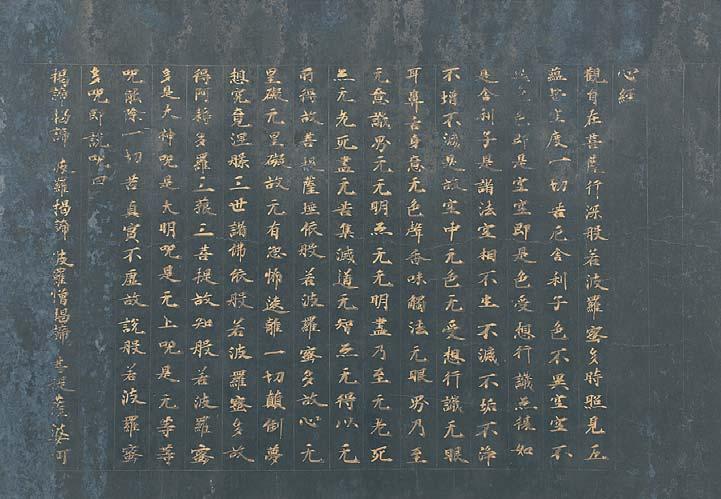 心經
觀自在菩薩行深般若波羅蜜多時照見五
蘊皆空度一切苦厄舍利子色不異空空不
異色色即是空空即是色受想行識亦復如
是舍利子是諸法空相不生不滅不垢不淨
不增不減是故空中无色无受想行識无眼
耳鼻舌身意无色聲香味觸法无眼界乃至
无意識界无无明亦无无明盡乃至无老死
亦无老死盡无苦集滅道无智亦无得以无
所得故菩提薩埵依般若波羅蜜多故心无
罣礙无罣礙故无有恐怖遠離一切顛倒夢
想究竟涅槃三世諸佛依般若波羅蜜多故
得阿耨多羅三藐三菩提故知般若波羅蜜
多是大神呪是大明呪是无上呪是无等等
呪能除一切苦真實不虛故說般若波羅蜜
多呪即說呪曰
揭諦揭諦 波羅揭諦 波羅僧揭諦 菩提薩婆可